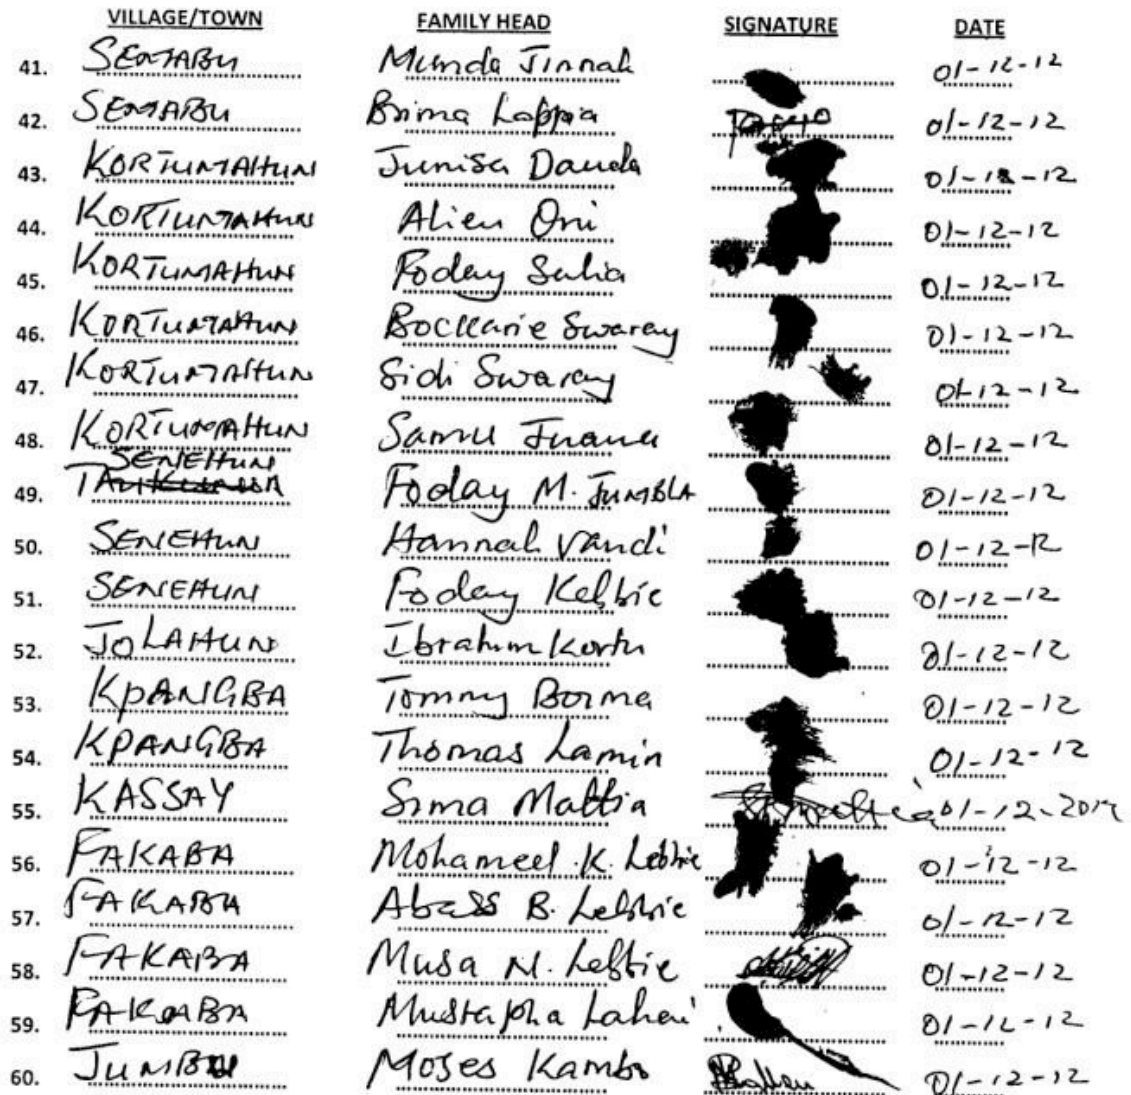 VILLAGE/TOWN FAMILY HEAD SIGNATURE DATE
41. SEMABU Munda Jinnah 01-12-12
42. SEMABU Brima Lappia 01-12-12
43. KORTUMAHUN Junisa Dauda 01-12-12
44. KORTUMAHUN Alieu Oni 01-12-12
45. KORTUMAHUN Foday Salia 01-12-12
46. KORTUMAHUN Bockarie Swaray 01-12-12
47. KORTUMAHUN Sidi Swaray 01-12-12
48. KORTUMAHUN Samu Juana 01-12-12
49. SENEHUN Foday M. JUMBLA 01-12-12
50. SENEHUN Hannah Vandi 01-12-12
51. SENEHUN Foday Kebbie 01-12-12
52. JOLAHUN Ibrahim Kortu 01-12-12
53. KPANGBA Tommy Borma 01-12-12
54. KPANGBA Thomas Lamin 01-12-12
55. KASSAY Sima Mattia 01-12-2012
56. FAKABA Mohamed .K. Lebbie 01-12-12
57. FAKABA Abass B. Lebbie 01-12-12
58. FAKABA Musa N. Lebbie 01-12-12
59. FAKABA Mustapha Lahai 01-12-12
60. JUMBU Moses Kambo 01-12-12